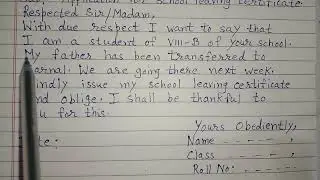 Application for School leaving certificate.
Respected Sir/Madam,
With due respect I want to say that
I am a student of VIII-B of your school.
My father has been transferred to
arnal. We are going there next week.
indly issue my school leaving certificate
nd oblige. I shall be thankful to
u for this.
Yours Obediently,
te: Name - - - - - ,
Class - - - - - ,
Roll No: - - - - .